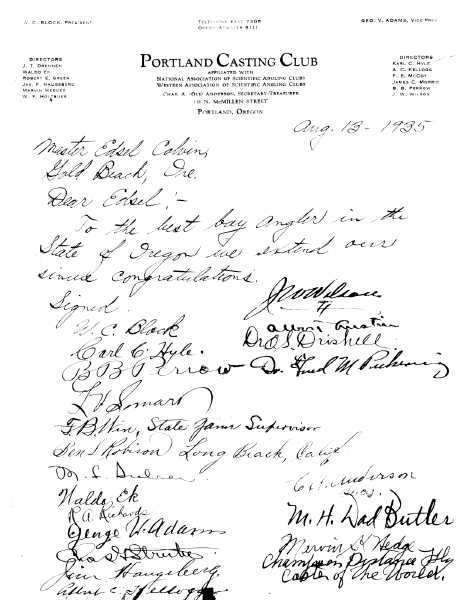 U. C. BLOCK, PRESIDENT
TELEPHONE EAST 7308
GEO. V. ADAMS, VICE PRES.
PORTLAND CASTING CLUB
AFFILIATED WITH
NATIONAL ASSOCIATION OF SCIENTIFIC ANGLING CLUBS
WESTERN ASSOCIATION OF SCIENTIFIC ANGLING CLUBS
CHAS. A. "OLE" ANDERSON, SECRETARY-TREASURER
N. MCMILLEN STREET
PORTLAND, OREGON
DIRECTORS
J. T. DRENNEN
WALDO EK
ROBERT E. GREEN
JAS. F. HAUGEBERG
DIRECTORS
CARL C. HYLE
A. C. KELLOGG
F. E. MCCOY
JAMES C. MORRIS
B. B. PERROW
J. W. WILSON
Aug. 13 - 1935
Mister Edsel Colvin,
Gold Beach, Ore.
Dear Edsel:-
To the best boy angler in the
State of Oregon we extend our
sincere congratulations.
Signed.
J W Wilson
U. C. Block
Austin
Carl C. Hyle.
Dr. O. S. Driskell
B B Perrow
Dr. M Pickering
State Game Supervisor
Robison Long Beach, Calif
Anderson
Waldo Ek
R. A.
M. H. Dad Butler
George V. Adams
Hedge
Champion Distance Fly
Caster of the World.
Jim Haugeberg
C. Kellogg